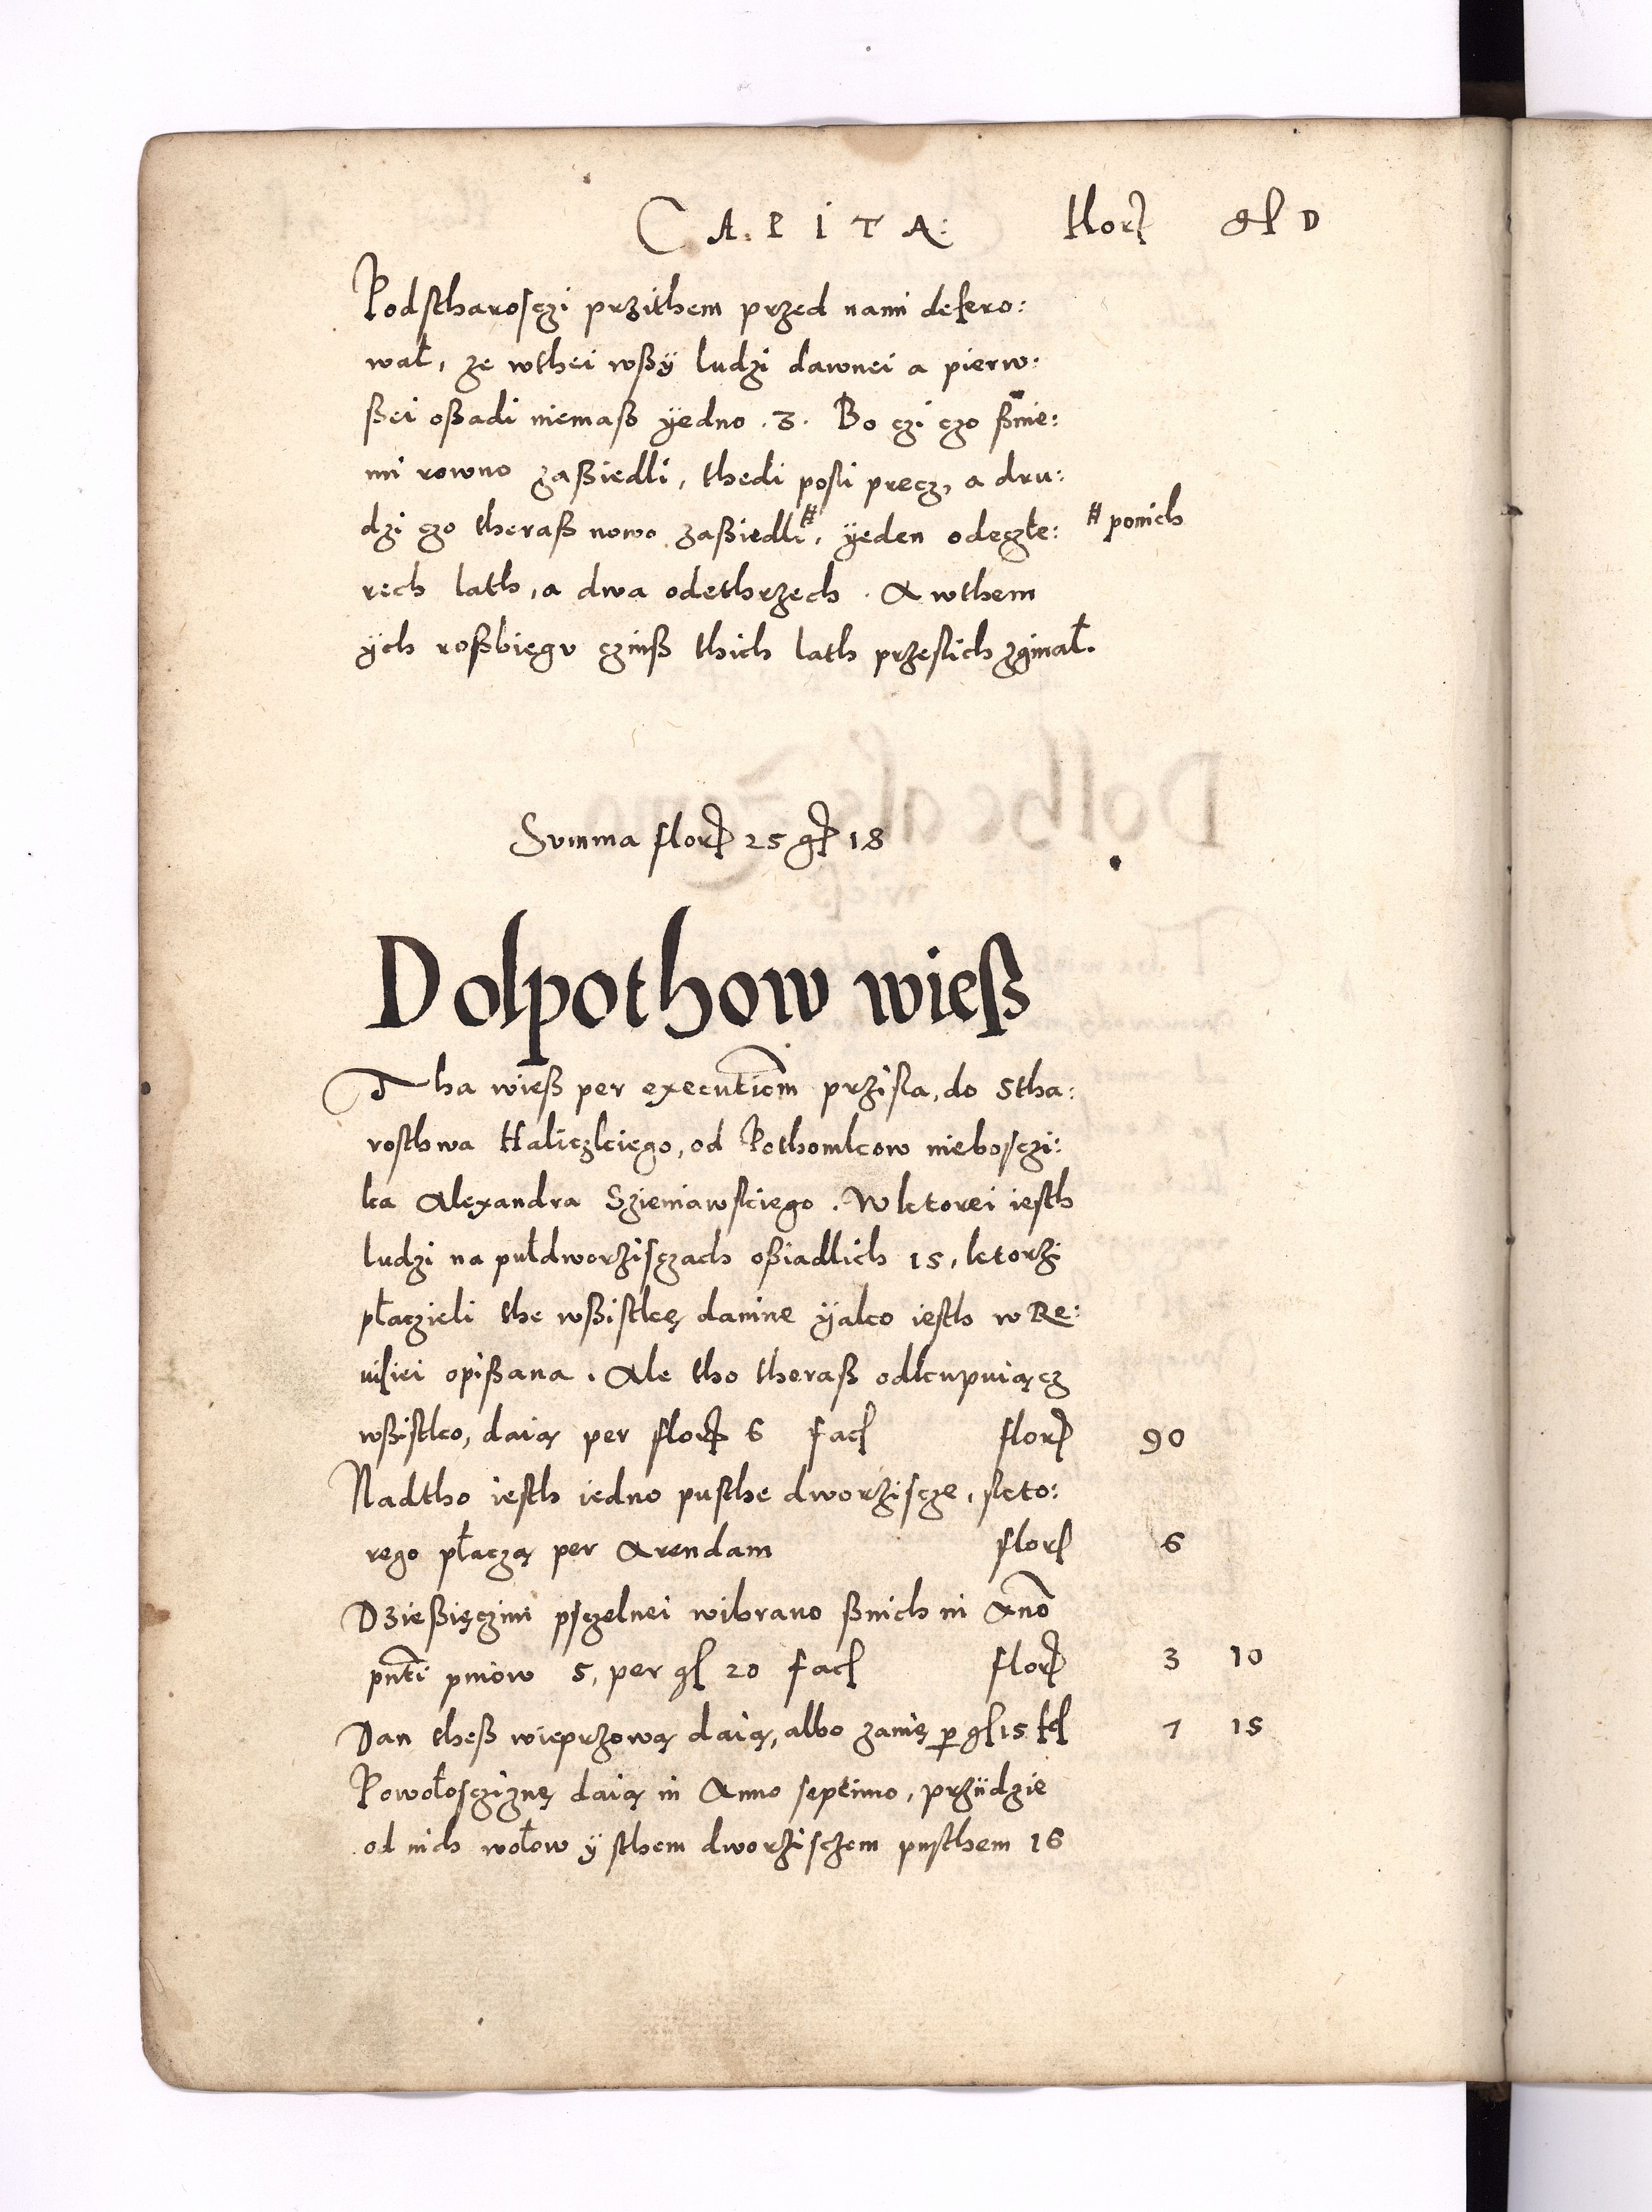 CAPITA: flor gr D
Podstharosczi przithem przed nami defero:
wał, ze wthei wßÿ ludzi dawnei a pierw:
ßei oßadi niemaß ÿedno . 3 . Bo czi czo ßnie:
mi rowno zaßiedli, thedi posli precz, a dru:
dzi czo theraß nowo zaßiedli #, ÿeden odeczte: # ponich
rech lath, a dwa odethrzech . A wthem
ÿch roßbiegu czinß thich lath przeslich zginał.
Summa flor 25 gr 18
Dolpothow wieß
Tha wieß per executiom przisla, do Stha:
rosthwa Haliczkiego, od Pothomkow niebosczi:
ka Alexandra Szieniawskiego . W ktorei iesth
ludzi na pułdworzisczach oßiadlich 15, ktorzi
płaczieli the wßistkę danine ÿako iesth w Re:
uisiei opißana . Ale tho theraß odkupuiącz
wßistko, daią per flor 6 fac flor 90
Nadtho iesth iedno pusthe dworziscze, skto:
rego płaczą per Arendam flor 6
Dzießięczini psczelnei wibrano ßnich in Ano
pnti pniow 5, per gr 20 fac flor 3 10
Dan theß wieprzową daią, albo zanię p gr 15 fcl 7 15
Powołosczizną daią in Anno septimo, prziidzie
od nich wołow ÿ sthem dworzisczem pusthem 16